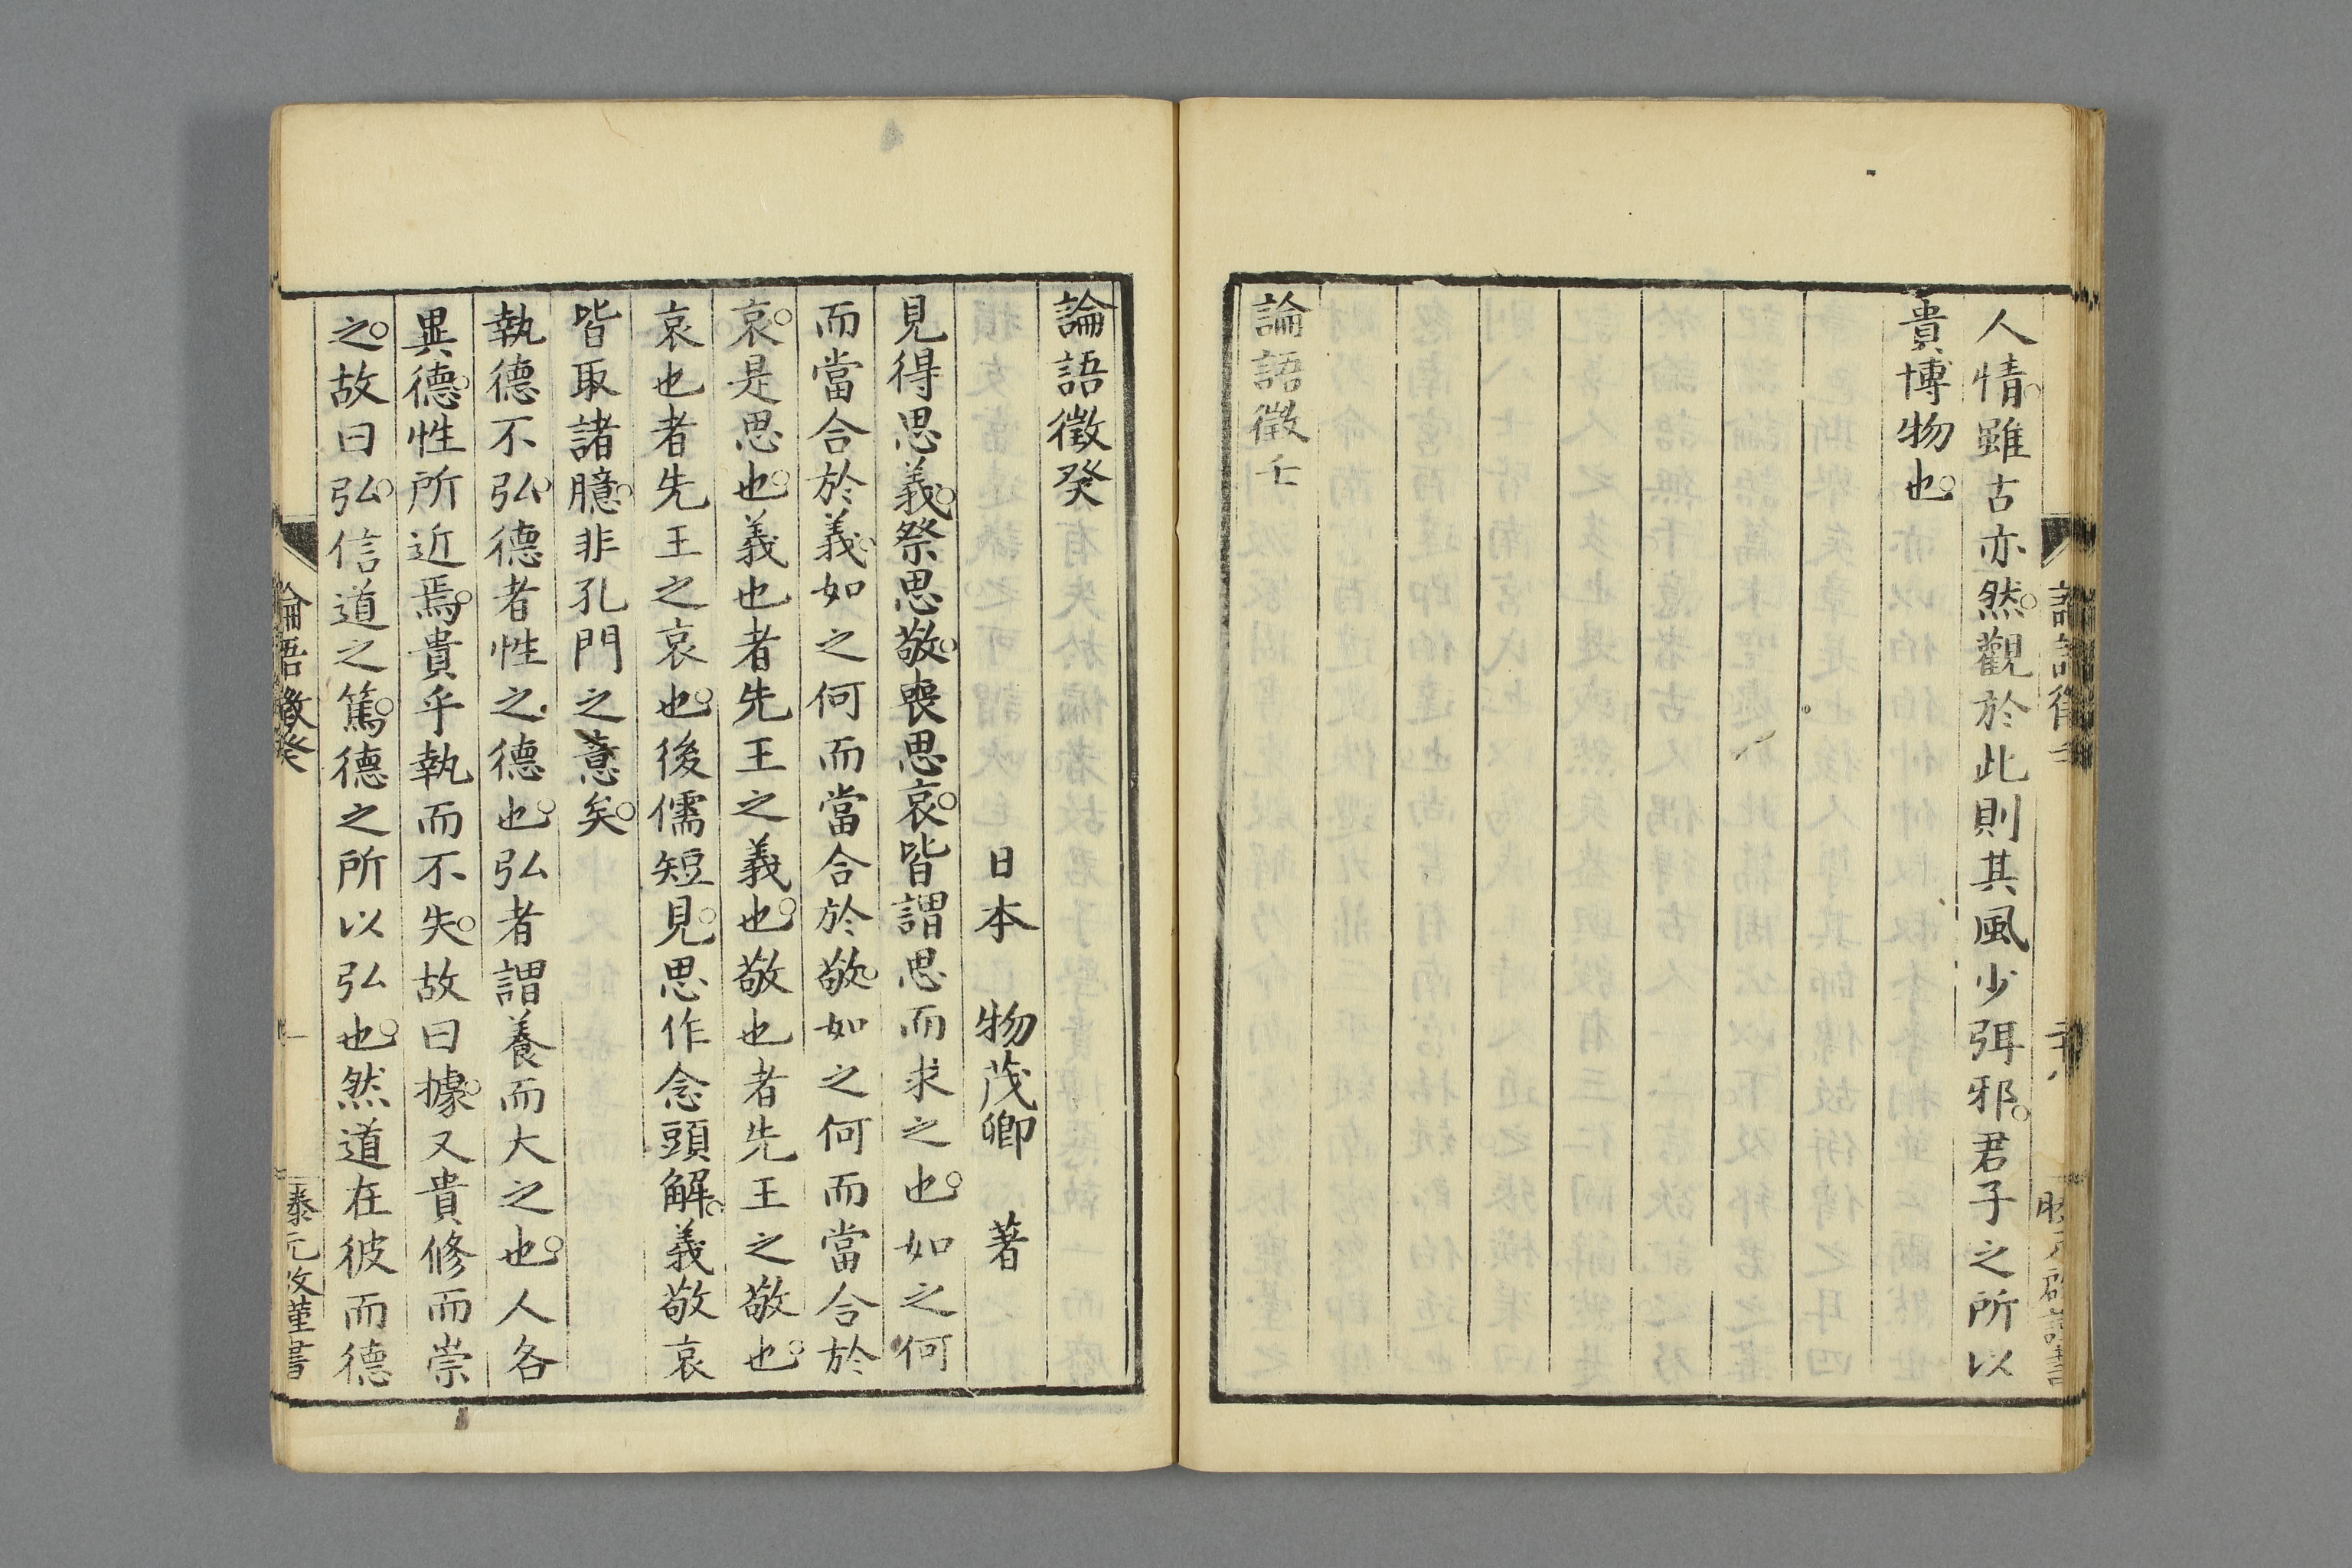 人情。雖古亦然。觀於此則其風少弭邪。君子之所以
貴博物也。
論語徵壬
論語徵癸
日本 物茂卿 著
見得思義。祭思敬。喪思哀。皆謂思而求之也。如之何
而當合於義。如之何而當合於敬。如之何而當合於
哀。是思也。義也者先王之義也。敬也者先王之敬也。
哀也者先王之哀也。後儒短見。思作念頭解。義敬哀
皆取諸臆。非孔門之意矣。
執德不弘。德者性之德也。弘者謂養而大之也。人各
異德。性所近焉。貴乎執而不失。故曰據。又貴修而崇
之。故曰弘。信道之篤。德之所以弘也。然道在彼而德
論語徵癸
一